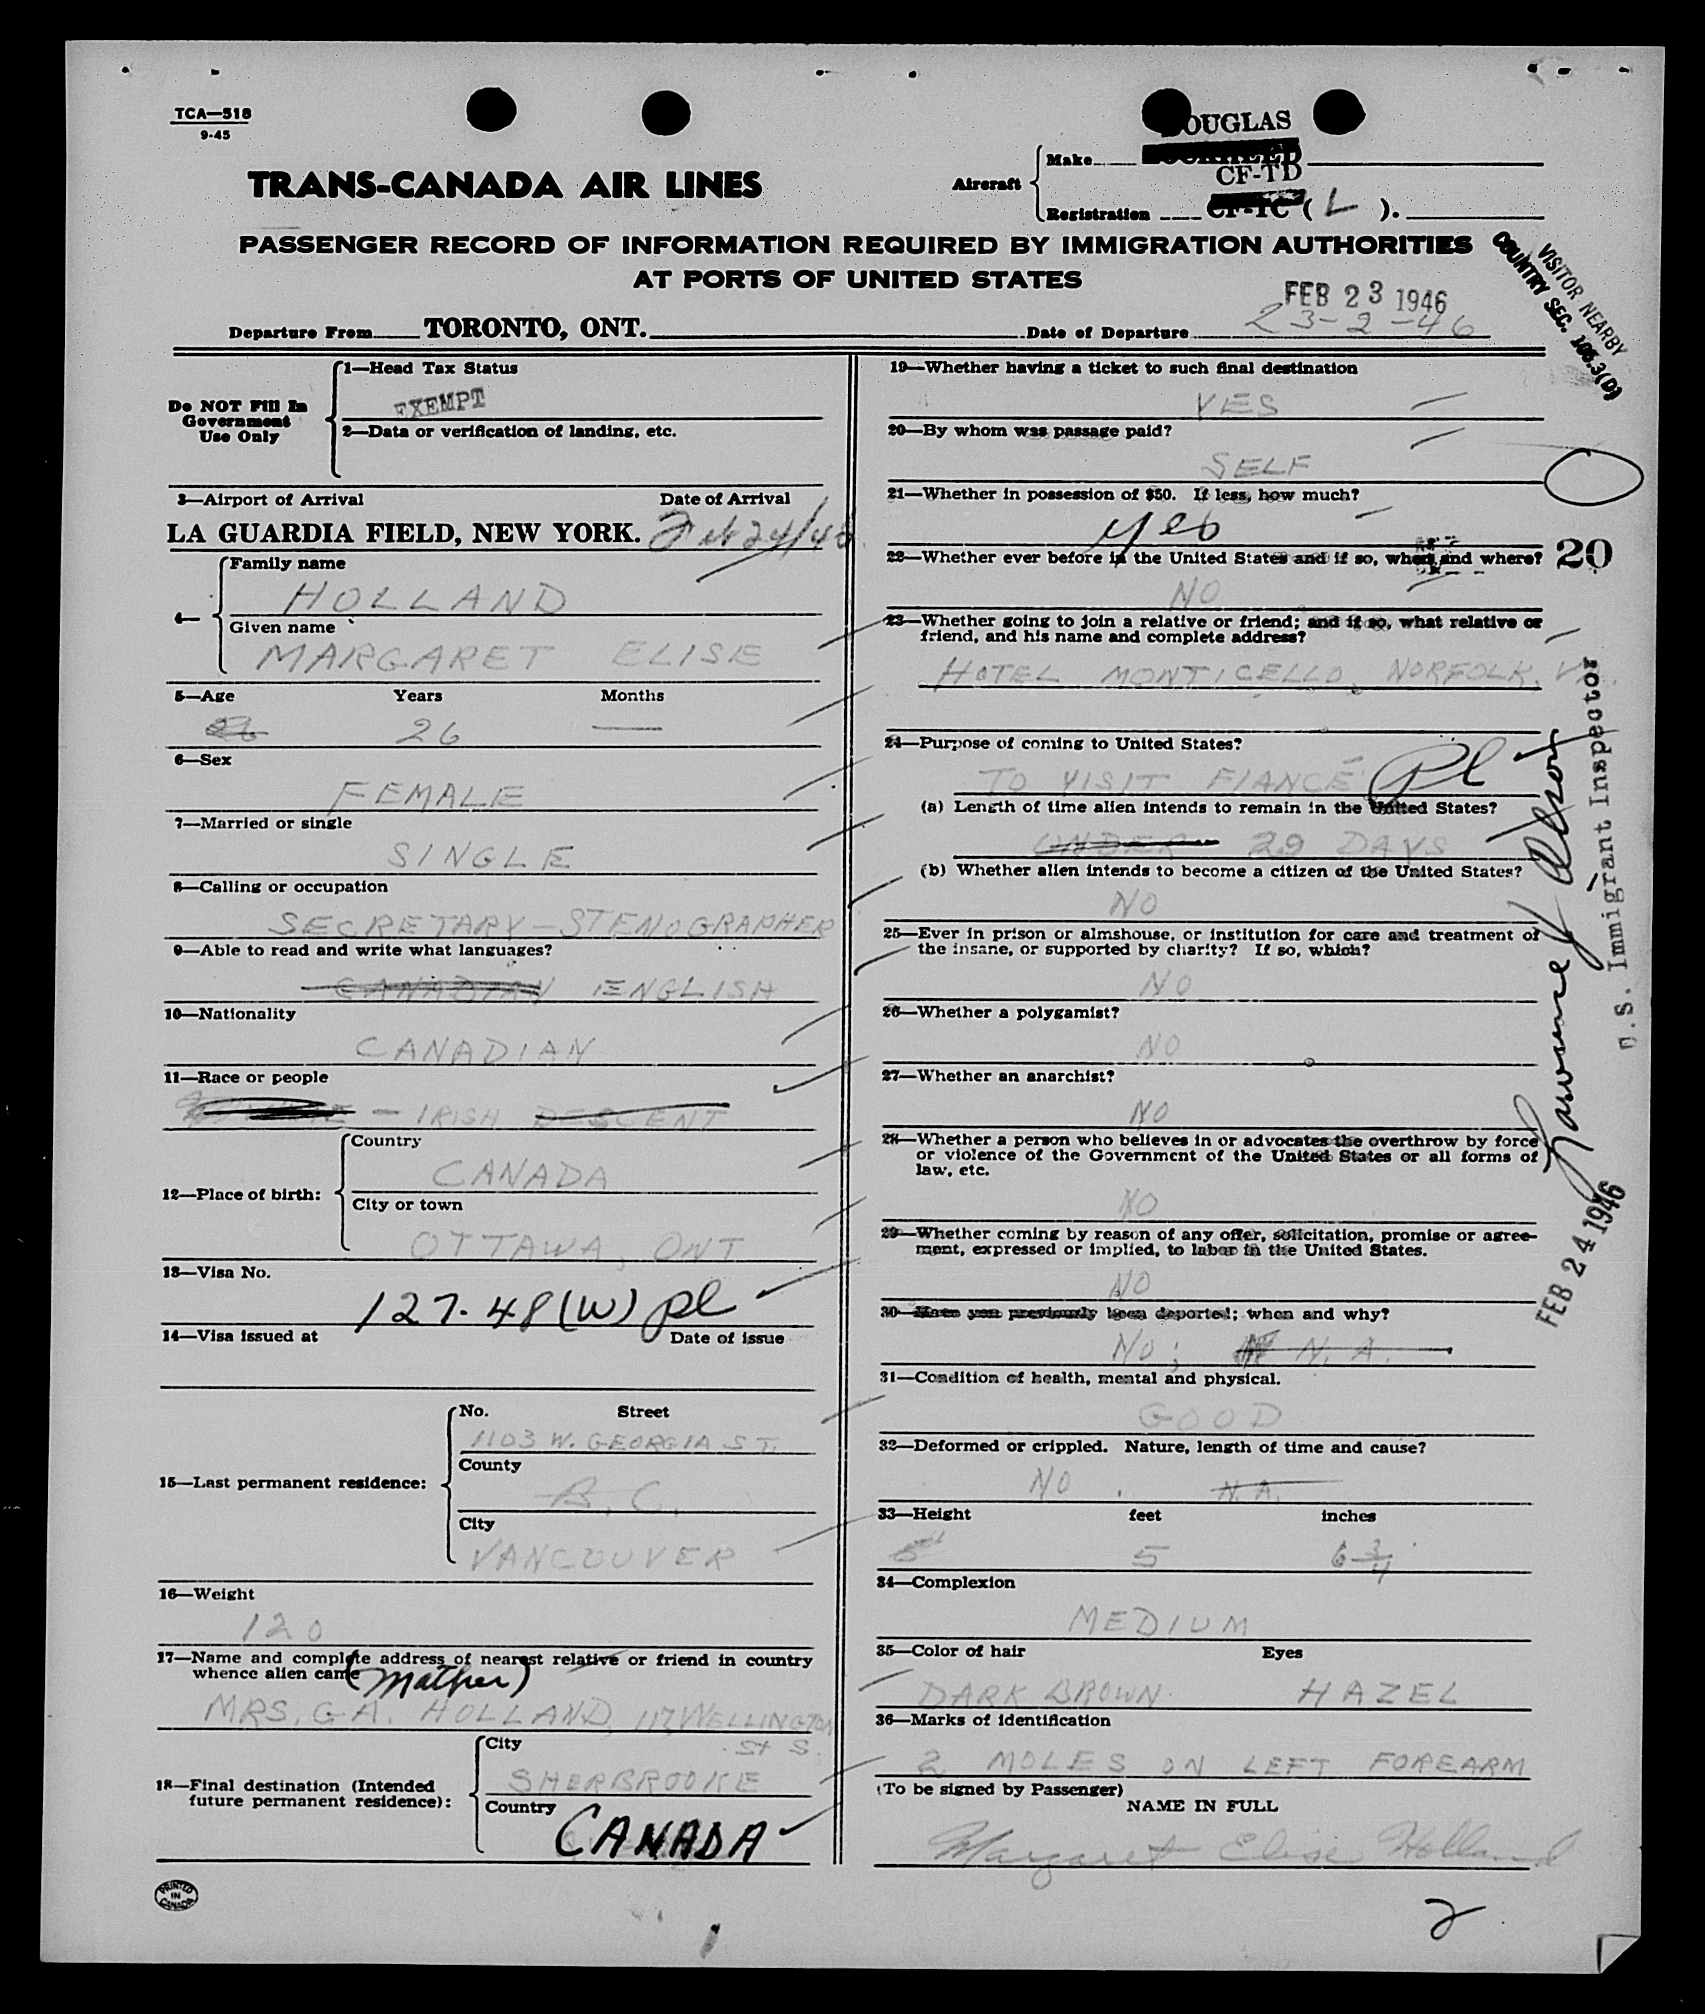 TCA—518
9-45
DOUGLAS
Make
LOCKHEED
TRANS-CANADA AIR LINES
Aircraft
CF-TD
Registration CF-TC ( L ).
PASSENGER RECORD OF INFORMATION REQUIRED BY IMMIGRATION AUTHORITIES
AT PORTS OF UNITED STATES
VISITOR NEARBY
COUNTRY SEC.
FEB 23 1946
Departure From TORONTO, ONT. Date of Departure 23-2-46
Do NOT Fill In
Government
Use Only
1—Head Tax Status
EXEMPT
2—Data or verification of landing, etc.
3—Airport of Arrival Date of Arrival
LA GUARDIA FIELD, NEW YORK. Feb 24/46
4—
Family name
HOLLAND
Given name
MARGARET ELISE
5—Age Years Months
26 26 —
6—Sex
FEMALE
7—Married or single
SINGLE
8—Calling or occupation
SECRETARY-STENOGRAPHER
9—Able to read and write what languages?
CANADIAN ENGLISH
10—Nationality
CANADIAN
11—Race or people
— IRISH DESCENT
12—Place of birth:
Country
CANADA
City or town
OTTAWA, ONT
13—Visa No.
127-48 (W) pl
14—Visa issued at Date of issue
15—Last permanent residence:
No. Street
1103 W. GEORGIA ST.
County
B.C.
City
VANCOUVER
16—Weight
120
17—Name and complete address of nearest relative or friend in country
whence alien came (Mother)
MRS. G.A. HOLLAND, 117, WELLINGTON
St S.
18—Final destination (Intended
future permanent residence):
City
SHERBROOKE
Country
CANADA
PRINTED
IN
CANADA
19—Whether having a ticket to such final destination
YES
20—By whom was passage paid?
SELF
21—Whether in possession of $50. If less, how much?
yes
22—Whether ever before in the United States and if so, when and where?
20
NO
23—Whether going to join a relative or friend; and if so, what relative or
friend, and his name and complete address?
HOTEL MONTICELLO, NORFOLK, VA.
24—Purpose of coming to United States?
TO VISIT FIANCE Pl
(a) Length of time alien intends to remain in the United States?
UNDER 29 DAYS
(b) Whether alien intends to become a citizen of the United States?
NO
25—Ever in prison or almshouse, or institution for care and treatment of
the insane, or supported by charity? If so, which?
NO
26—Whether a polygamist?
NO
27—Whether an anarchist?
NO
28—Whether a person who believes in or advocates the overthrow by force
or violence of the Government of the United States or all forms of
law, etc.
NO
29—Whether coming by reason of any offer, solicitation, promise or agree-
ment, expressed or implied, to labor in the United States.
NO
30—Have you previously been deported; when and why?
NO; N.A.
31—Condition of health, mental and physical.
GOOD
32—Deformed or crippled. Nature, length of time and cause?
NO. N.A.
33—Height feet inches
5 6 3/4
34—Complexion
MEDIUM
35—Color of hair Eyes
DARK BROWN HAZEL
36—Marks of identification
2 MOLES ON LEFT FOREARM
(To be signed by Passenger)
NAME IN FULL
Margaret Elise Holland
2
U.S. Immigrant Inspector
FEB 24 1946